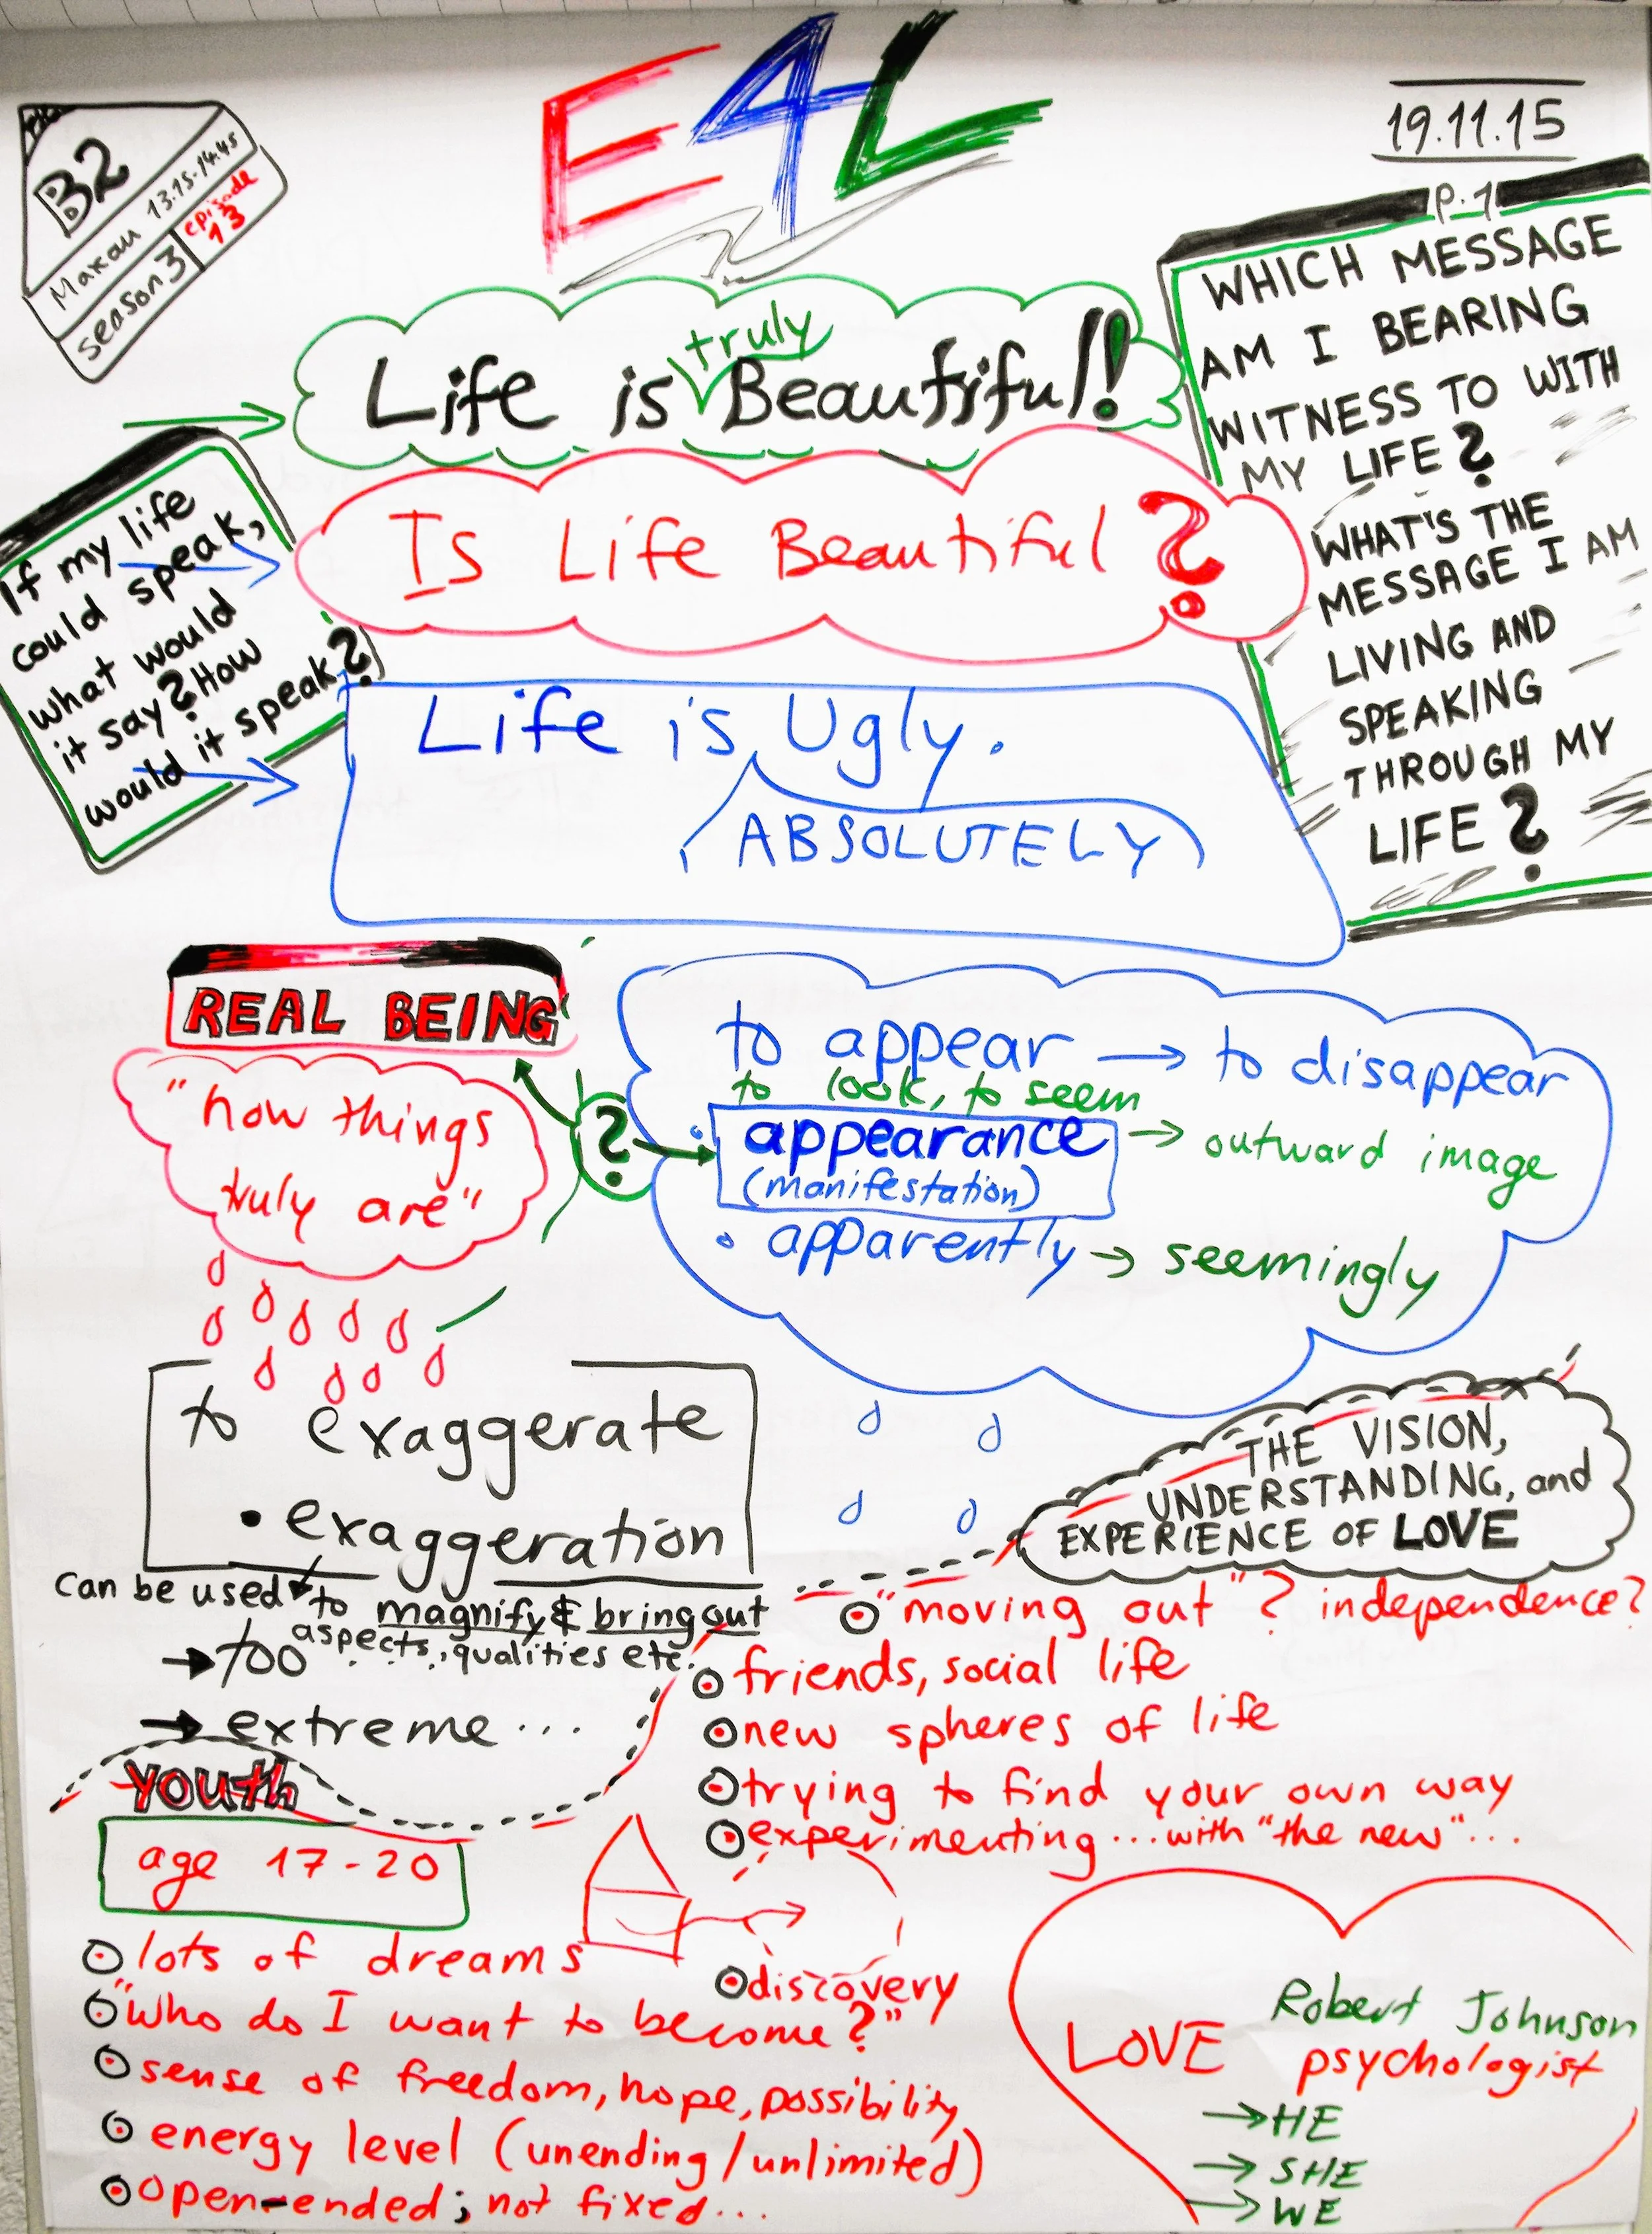 E4L
19.11.15
B2
Makau 13.15-14.45
season 3
episode
13
Life is truly Beautiful!
Is Life Beautiful?
Life is Ugly.
ABSOLUTELY
If my life
could speak,
what would
it say? How
would it speak?
P.1
WHICH MESSAGE
AM I BEARING
WITNESS TO WITH
MY LIFE?
WHAT'S THE
MESSAGE I AM
LIVING AND
SPEAKING
THROUGH MY
LIFE?
REAL BEING
"how things
truly are"
?
to appear → to disappear
to look, to seem
• appearance → outward image
(manifestation)
• apparently → seemingly
to exaggerate
• exaggeration
can be used to magnify & bring out
aspects, qualities etc.
→ too
→ extreme...
THE VISION,
UNDERSTANDING, and
EXPERIENCE OF LOVE
"moving out"? independence?
friends, social life
new spheres of life
trying to find your own way
experimenting...with "the new"...
discovery
YOUTH
age 17-20
lots of dreams
"who do I want to become?"
sense of freedom, hope, possibility
energy level (unending/unlimited)
open-ended; not fixed...
LOVE
Robert Johnson
psychologist
→ HE
→ SHE
→ WE